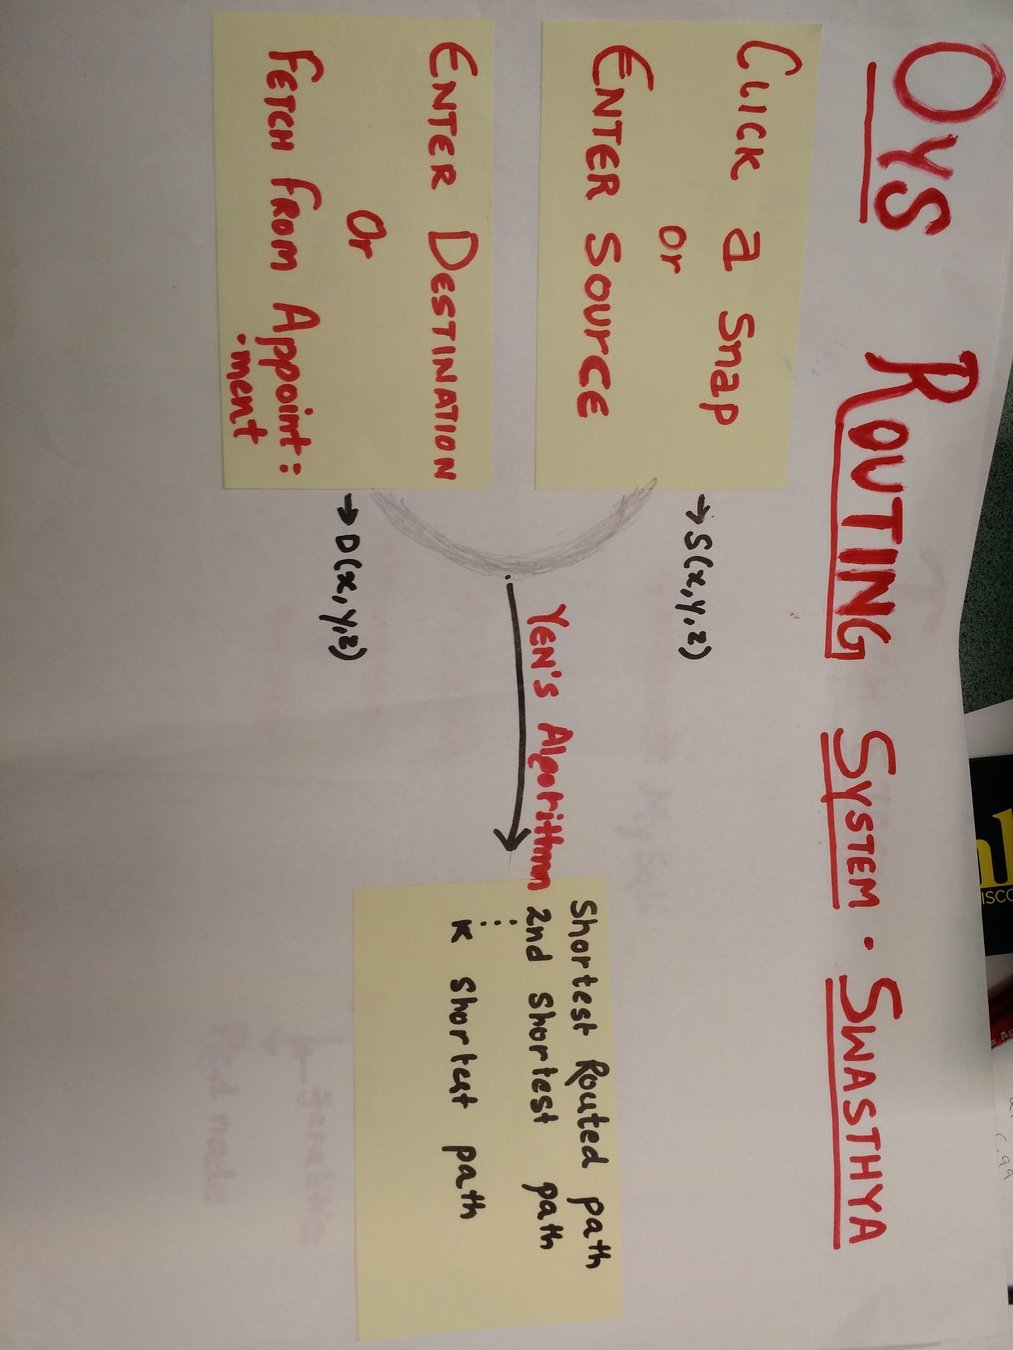 OYS ROUTING SYSTEM · SWASTHYA
CLICK a Snap
or
ENTER SOURCE
→ S(x,y,z)
ENTER DESTINATION
Or
FETCH FROM Appoint:
·ment
→ D(x,y,z)
YEN'S Algorithm
Shortest Routed path
2nd shortest path
⋮
K shortest path